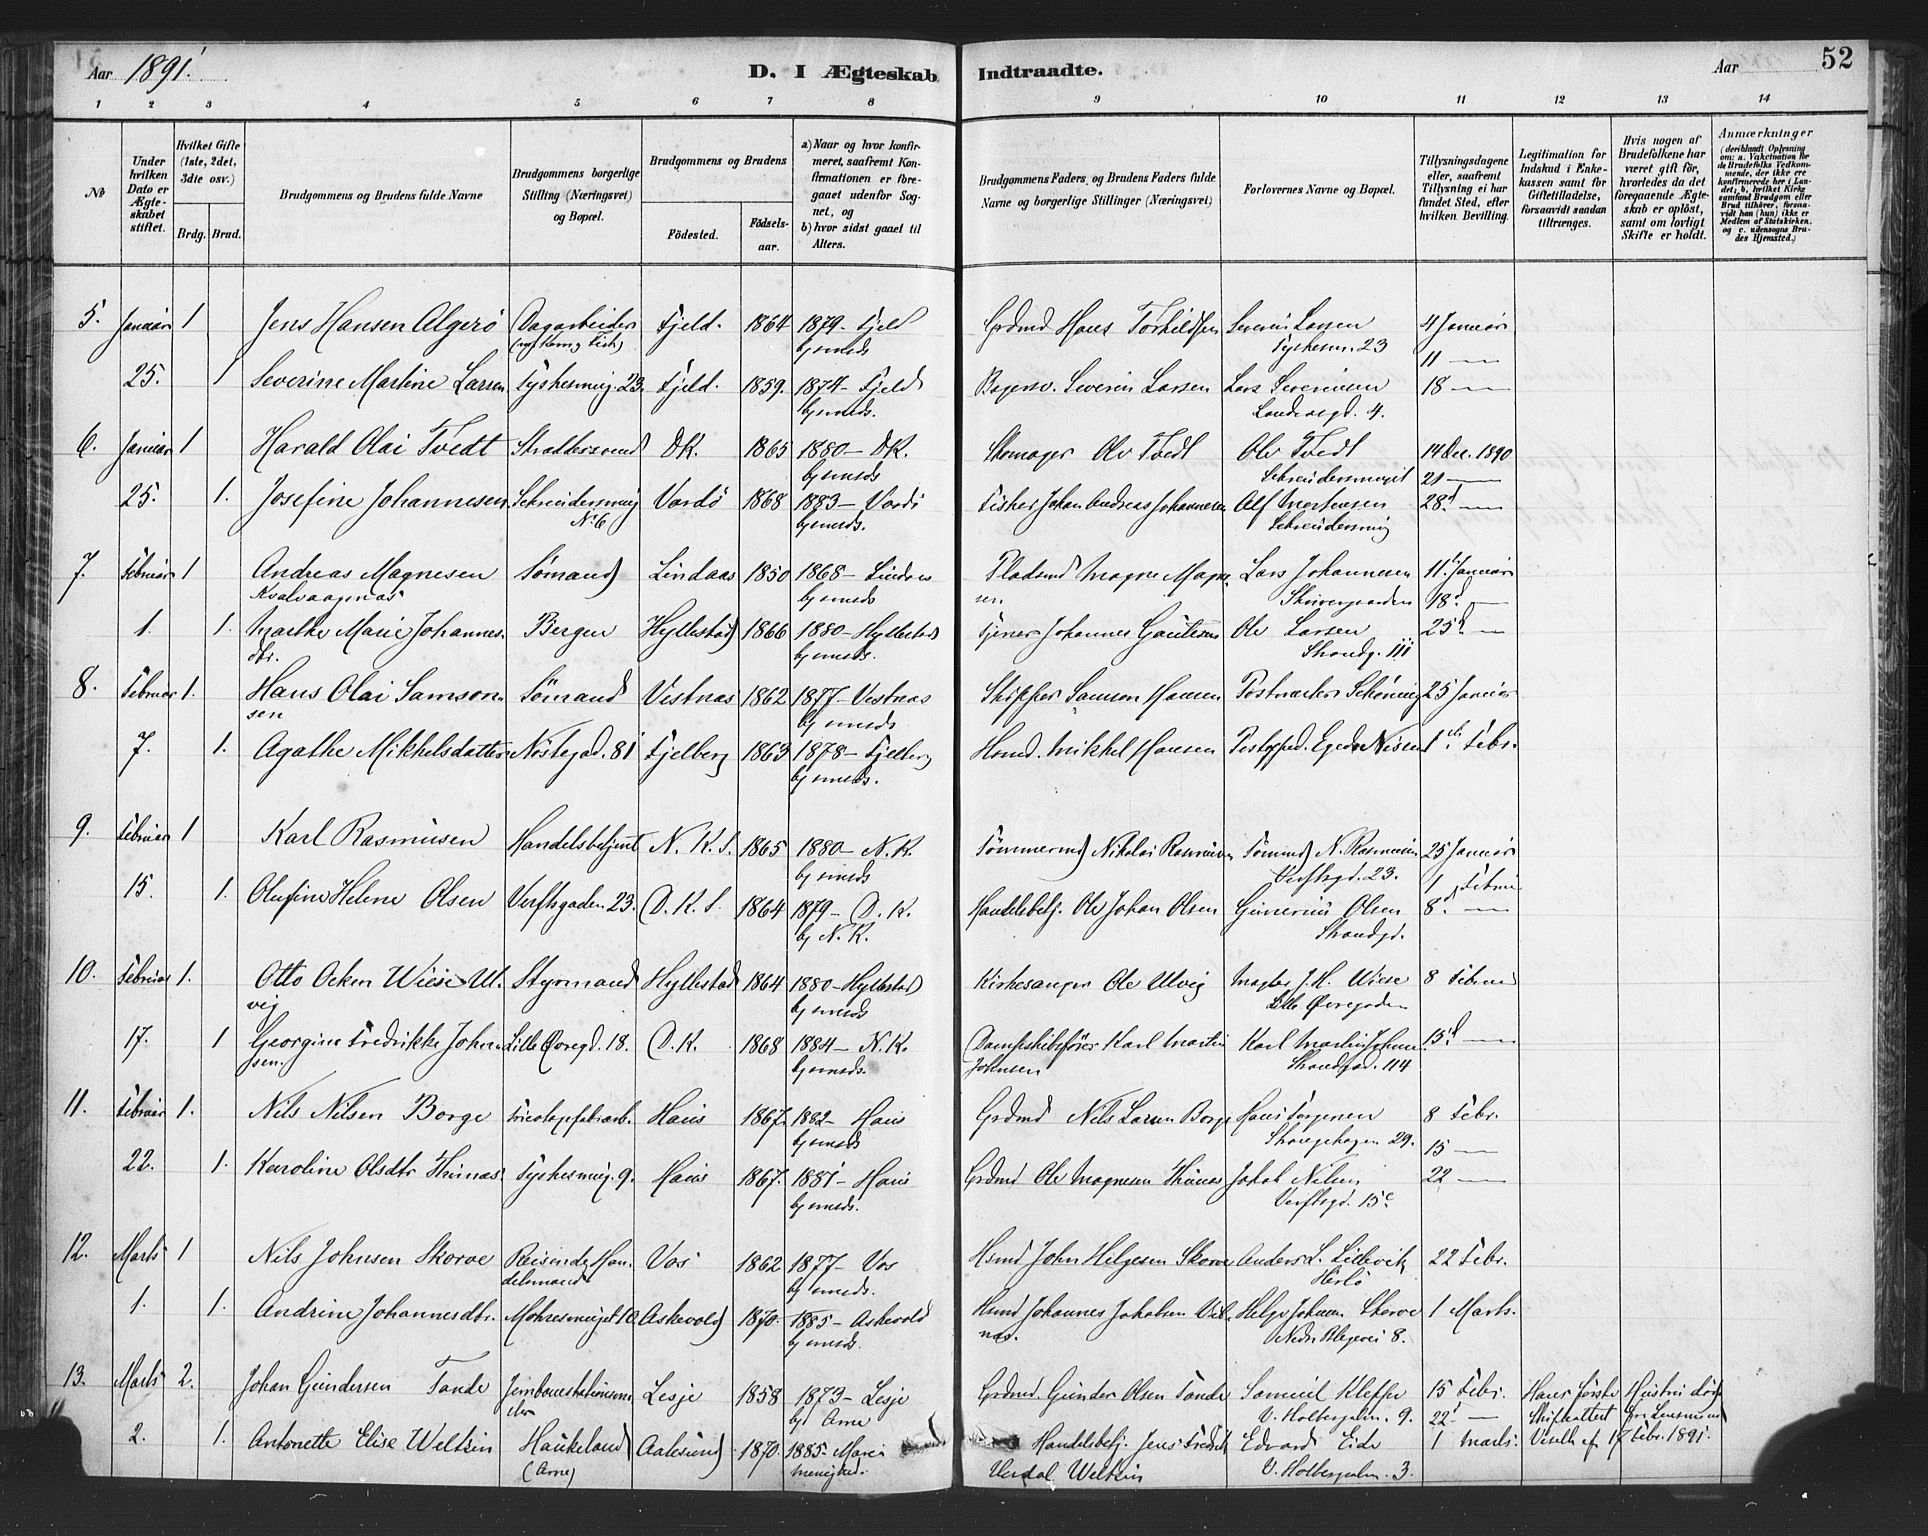 Aar 1891. D. I Ægteskab Indtraadte. Aar 52
1 2 3 4 5 6 7 8 9 10 11 12 13 14
No
Under hvilken Dato er Ægteskabet stiftet.
Hvilket Gifte (1ste, 2det, 3die osv.)
Brdg. Brud.
Brudgommens og Brudens fulde Navne
Brudgommens borgerlige Stilling (Næringsvei) og Bopæl.
Brudgommens og Brudens
Fødested.
Fødsels-aar.
a) Naar og hvor konfirmeret, saafremt Konfirmationen er foregaaet udenfor Sognet, og
b) hvor sidst gaaet til Alters.
Brudgommens Faders, og Brudens Faders fulde Navne og borgerlige Stillinger (Næringsvei)
Forlovernes Navne og Bopæl.
Tillysningsdagene eller, saafremt Tillysning ei har fundet Sted, efter hvilken Bevilling.
Legitimation for Indskud i Enkekassen samt for Giftetilladelse, forsaavidt saadan tiltrænges.
Hvis nogen af Brudefolkene har været gift før, hvorledes da det foregaaende Ægteskab er opløst, samt om lovligt Skifte er holdt.
Anmærkninger
(deriblandt Oplysning om: a. Vakcination for de Brudefolks Vedkommende, der ikke ere konfirmerede her i Landet; b. hvilket Kirkesamfund Brudgom eller Brud tilhører, forsaavidt han (hun) ikke er Medlem af Statskirken. og c. udensogns Brudes Hjemsted.)
5. Januar 1 Jens Hansen Algerö Dagarbeider Fjeld. 1864 1879 - Fjeld Grdmd Hans Torkildsen Severin Larsen 4 Januar
bj smeds Tyskesm. 23 11 —
25. 1 Severine Martine Larsen Tyskesmug 23. Fjeld. 1859. 1874 - Fjeld Severin Larsen Lars Severinsen 18 —
bj smeds. gd. 4.
6. Januar 1 Harald Olai Tvedt DK. 1865 1880 - DK. Skomager Ole Tvedt Ole Tvedt 14 Dec. 1890
bj smeds Schreudersmuget 21 —
25. 1. Josefine Johannesen Schreudersmug Vardö 1868 1883 - Vardö Fisker Johan Andreas Johannesen Alf Mortensen 28d —
No 6 bj smeds. Schreudersmug
7. Februar 1 Andreas Magnesen Sömand Lindaas 1850 1868 - Lindaas Pladsmd Magne Magne- Lars Johannesen 11d Januar
Kvalvaagnæs bj smeds sen Skivergaarden 18d —
1. 1. Marthe Marie Johannes- Bergen Hyllestad 1866 1880 - Hyllestad Tjener Johannes Gautesen Ole Larsen 25d —
dtr. bj smeds. Strandg. 111
8. Februar 1. Hans Olai Samson- Sömand Vestnæs 1862 1877 - Vestnæs Skipper Samson Hansen Postmester Schöning 25 Januar
sen bj smeds
7. 1. Agathe Mikkelsdatter Nöstegad. 81 Fjelberg 1863 1878 - Fjelberg Hsmd. Mikkel Hansen Postexped. Egede Nissen 1ste Febr.
bj smeds.
9. Februar 1 Karl Rasmusen Handelsbetjent N. K. S. 1865 1880 - N. K. Tömmermd Nikolai Rasmusen Tömmd N. Rasmusen 25 Januar
bj smeds Verftsgd. 23. 1 Februar
15. 1. Olufine Helene Olsen Verftsgaden 23. D. K. S. 1864 1879 - D. K. Handelsbetj. Ole Johan Olsen Gunerius Olsen 8d —
bj N. K. Strandgd.
10. Februar 1. Otto Ocken Wiese Ul- Styrmand Hyllestad 1864 1880 - Hyllestad Kirkesanger Ole Ulvig Mægler J. H. Wiese 8 Februar
vig bj smeds Lille Övregaden
17. 1 Georgine Fredrikke John- Lille Övregd. 18. D. K. 1868 1884 - N. K. Dampskibsförer Karl Martin Karl Martin Johnsen 15d —
sen. bj smeds. Johnsen Strandgad. 114
11. Februar 1. Nils Nilsen Borge Tricotagefabrarb. Haus 1867. 1882 - Haus Grdmd Nils Larsen Borge Hans Torgersen 8 Febr.
bj smeds Skregehagen 29. 15 —
22. 1. Karoline Olsdtr Thunæs Tyskesmug. 9. Haus 1867. 1881 - Haus Grdmd Ole Magnesen Thunæs Jakob Nilsen 22 —
bj smeds. Verftsgd. 15c
12. Marts 1 Nils Johnsen Skorve Reisende Han- Vos 1862 1877 - Vos Hsmd John Helgesen Skorve Anders L. Lillevik 22 Febr.
delsmand bj smeds. Herlö
1. 1. Andrine Johannesdtr. Mohresmuget 10 Askevold 1870. 1885 - Askevold Hsmd Johannes Jakobsen Vil- Helge Johnsen Skorve 1 Marts.
bj smeds. nes. Nedre Blegevei 8.
13. Marts 2. Johan Gundersen Tande Jernbanestationsme- Lesje 1858 1873 - Lesje Grdmd. Gunder Olsen Tande Samuel Kleppe 15 Febr. Hans første Hustru död
ster bj Arne V. Holbergsalm. 9. 22d — Skifteattest fra Lensmand
2. 1. Antonette Elise Weltzin Haukeland Aalesund 1870. 1885 Marie Handelsbetj. Jens Fredrik Edvard Eide 1 Marts. 17 Febr. 1891.
(Arne) menighed. Uerdal Weltzin V. Holbergsalm. 3.